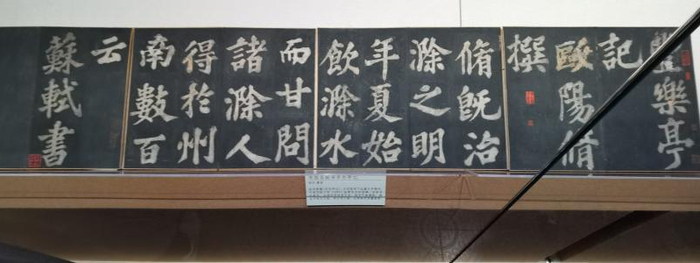 豐樂亭
記
歐陽脩
撰
脩既治
滁之明
年夏始
飲滁水
而甘問
諸滁人
得於州
南數百
云
蘇軾書